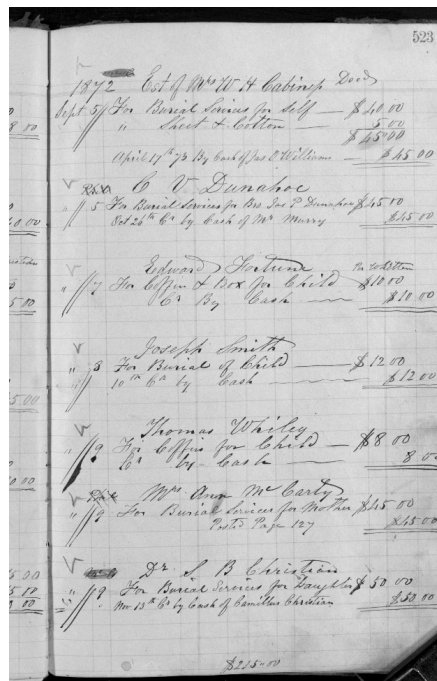 523
1872 Est of Mrs W H Cabiness Dec'd
Sept. 5 For Burial Services for Self — $40.00
" Sheet & Cotton — 5.00
$45.00
April 17th 73 By Cash of Jas D Williams — $45.00
C V Dunahoe
" 5 For Burial Services for Bro. Jas P Dunahoe $45.00
Oct 26th Cr by Cash of Mr Murry $45.00
Edward Fortune
" 7 For Coffin & Box for Child — $10.00
Cr By Cash — $10.00
Joseph Smith
" 8 For Burial of Child — $12.00
10th Cr by Cash — $12.00
Thomas Whiley
" 9 For Coffin for Child — $8.00
Cr by Cash — 8.00
Mrs Ann McCarty
" 9 For Burial Services for Mother $45.00
Posted Page 127 $45.00
Dr. S B Christian
" 9 For Burial Services for Daughter $50.00
Nov 13th Cr by Cash of Camillus Christian $50.00
$215.00